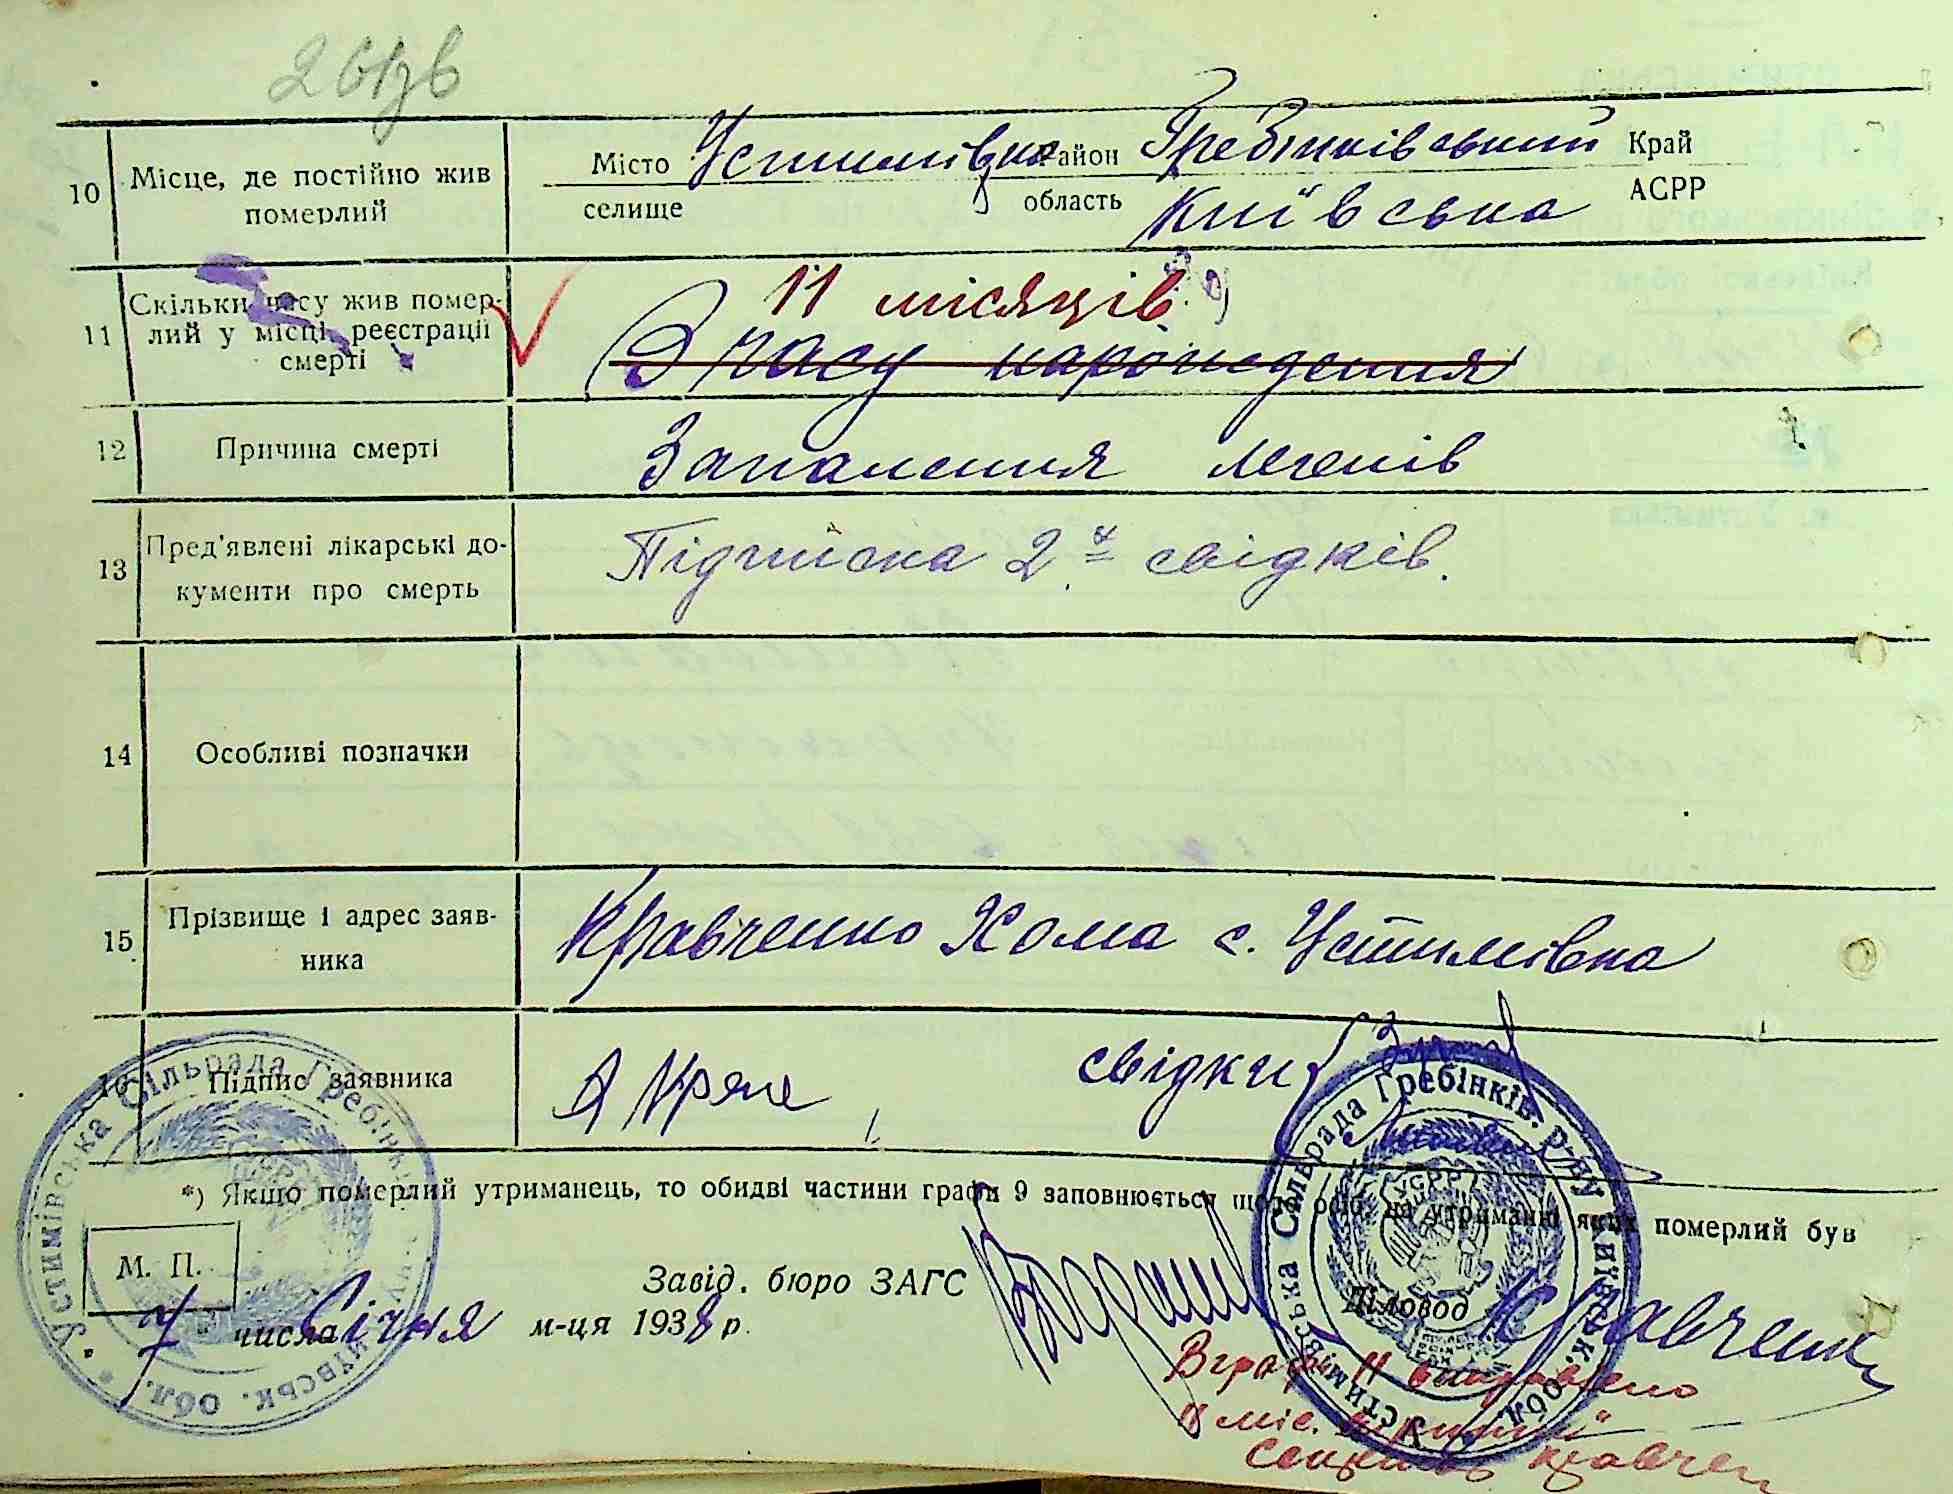 10 Місце, де постійно жив
померлий
Місто Устимівка Район Гребінківський Край
селище область Київська АСРР
11 Скільки часу жив помер-
лий у місці реєстрації
смерті
11 місяців
З часу народження
12 Причина смерті Запалення легенів
13 Пред'явлені лікарські до-
кументи про смерть
Підписка 2-х свідків.
14 Особливі позначки
15 Прізвище і адрес заяв-
ника
Кравченко Хома с. Устимівка
16 Підпис заявника свідки
*) Якщо померлий утриманець, то обидві частини графи 9 заповнюється щодо осіб, на утриманні яких померлий був
М. П.
Завід. бюро ЗАГС
Діловод Кравченко
7 числа Січня м-ця 1938 р.
В графі 11 виправлено
11 міс.
Кравчен
Устимівська Сільрада Гребінків. р-ну Київськ. обл.
Устимівська Сільрада Гребінків. р-ну Київськ. обл.
УСРР